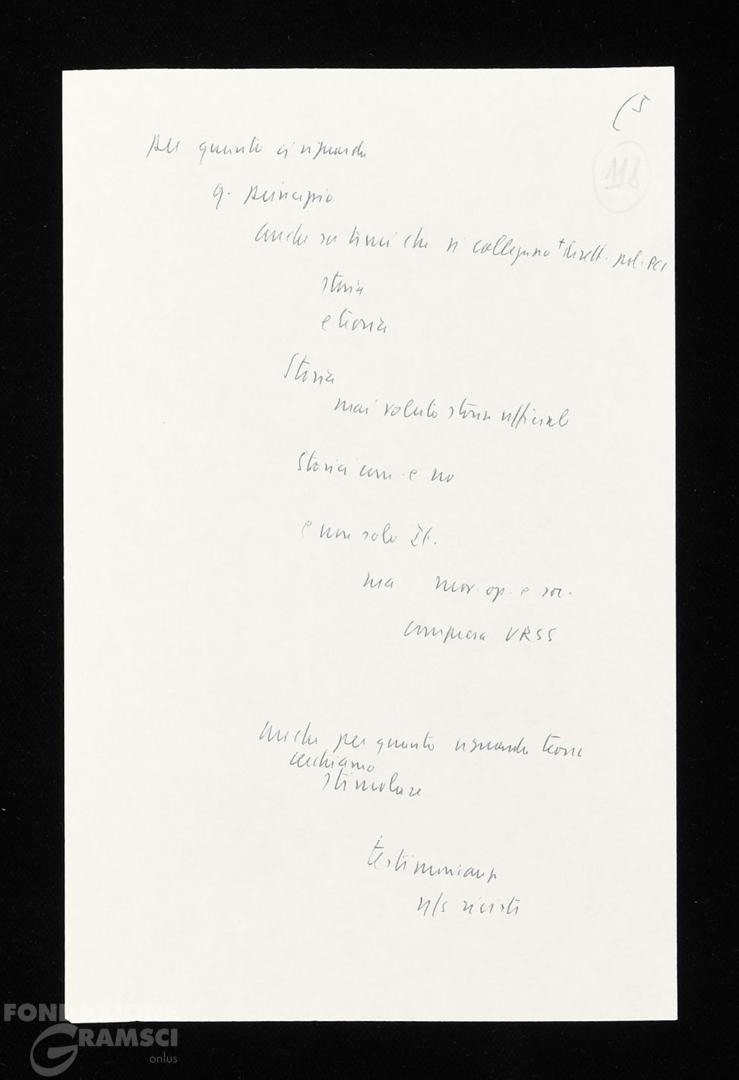 (5
118
per quanto ci riguarda
q. principio
anche su temi che si collegano + dirett. pol. PCI
storia
e teoria
Storia
mai voluto storia ufficiale
Storici com. e no
e non solo It.
ma mov. op. e soc.
compresa URSS
Anche per quanto riguarda teoria
cerchiamo
stimolare
testimonianza
n/s riviste
FONDAZIONE
GRAMSCI
onlus